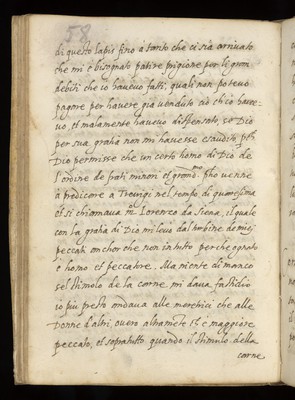 58
di questo lapis fino à tanto che ci sia arrivato
che mi è bisognato patire prigione per li gran
debiti che io havevo fatti, quali non potevo
pagare per havere già venduto ciò ch'io have-
vo, et malamente havevo dispensato, se Dio
per sua gratia non mi havesse esaudito
Dio permisse che un certo homo di Dio de
l'ordine de frati minori venne
à predicare a Trevigi nel tempo di quaresima
et si chiamava Lorenzo da Siena, il quale
con la gratia di Dio mi levò dal limbine de miei
peccati anchor che non in tutto perche ognuno
è homo et peccatore. Ma niente di manco
se'l stimolo de la carne mi dava fastidio
io più presto andava alle meretrici che alle
Donne d'altri, overo è maggiore
peccato, et sopratutto quando il stimulo della
carne